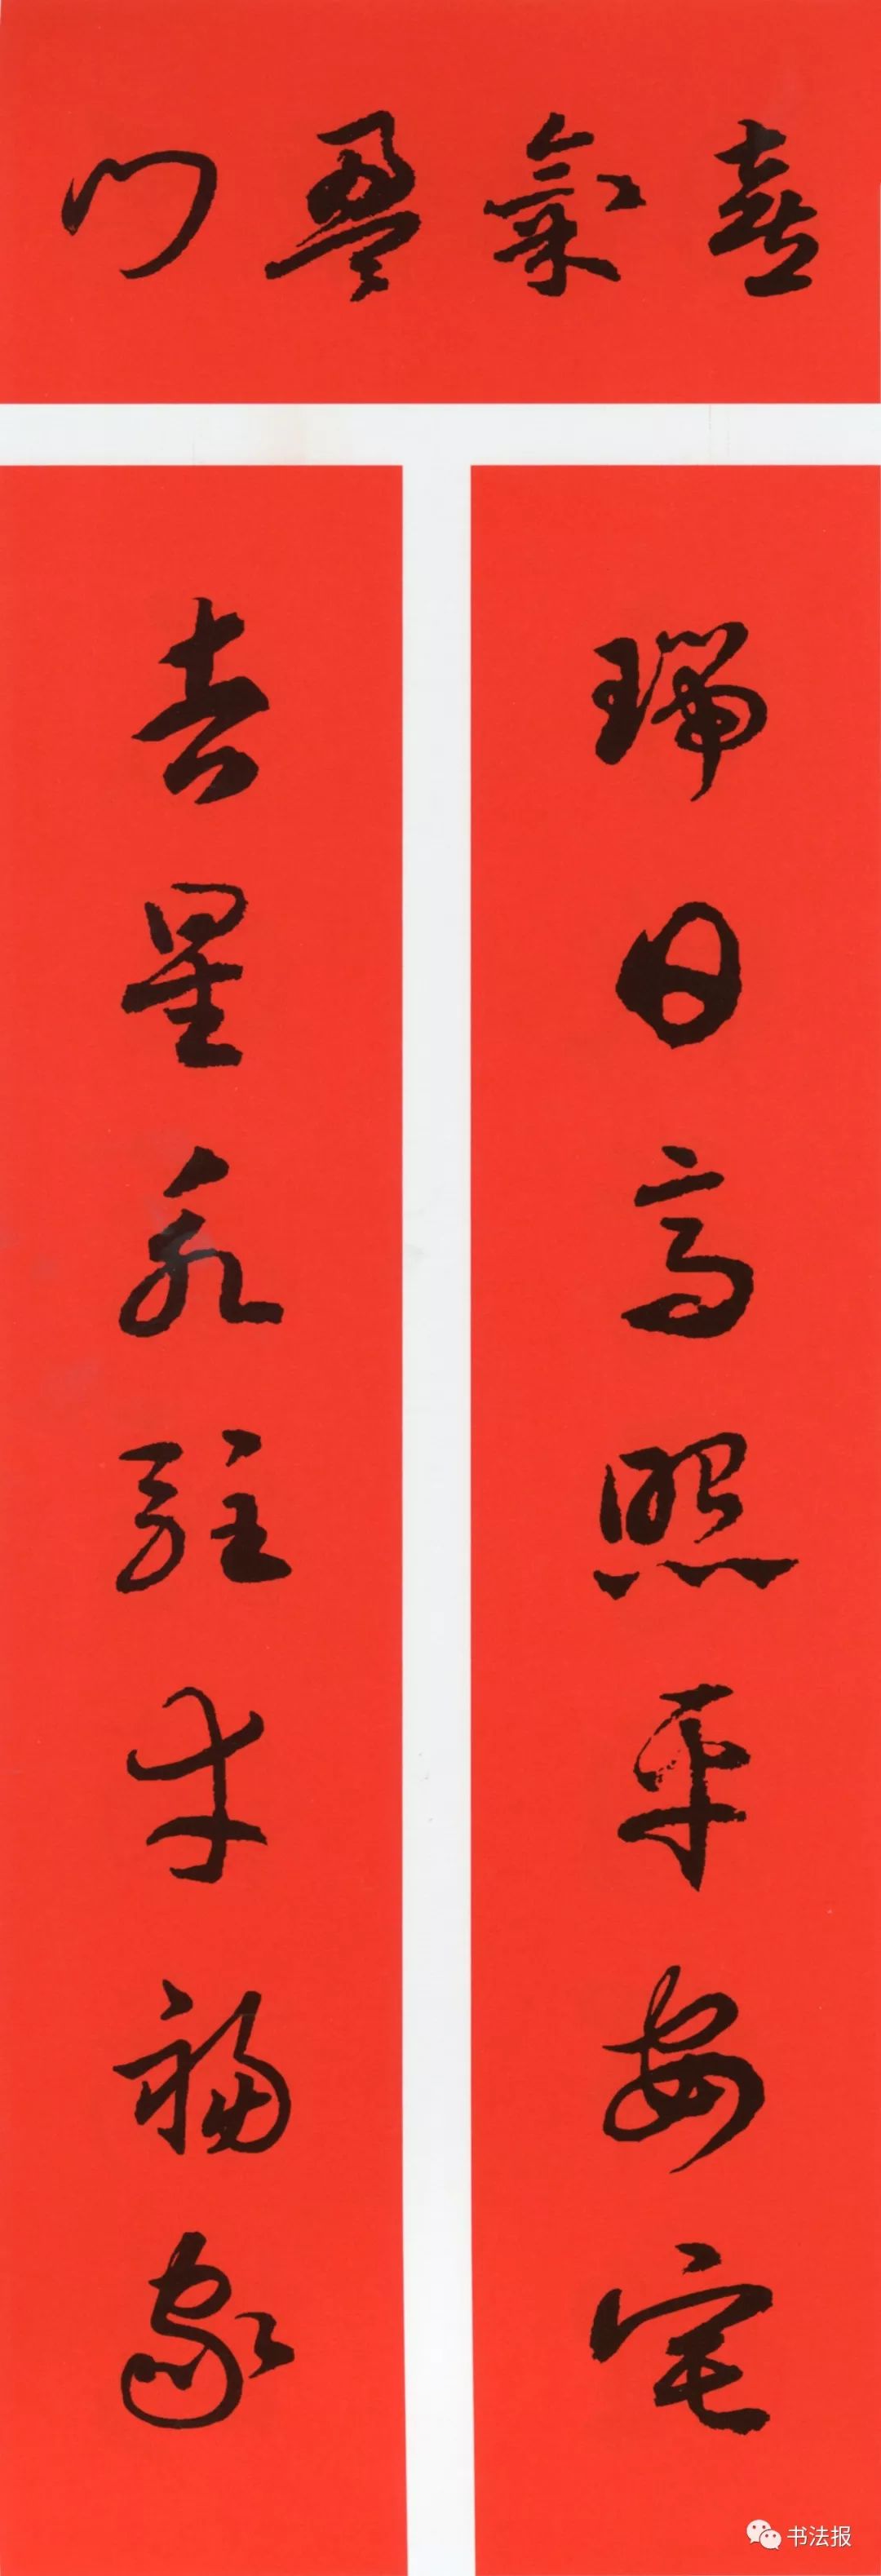 喜氣盈門
瑞日高照平安宅
吉星永駐幸福家
书法报